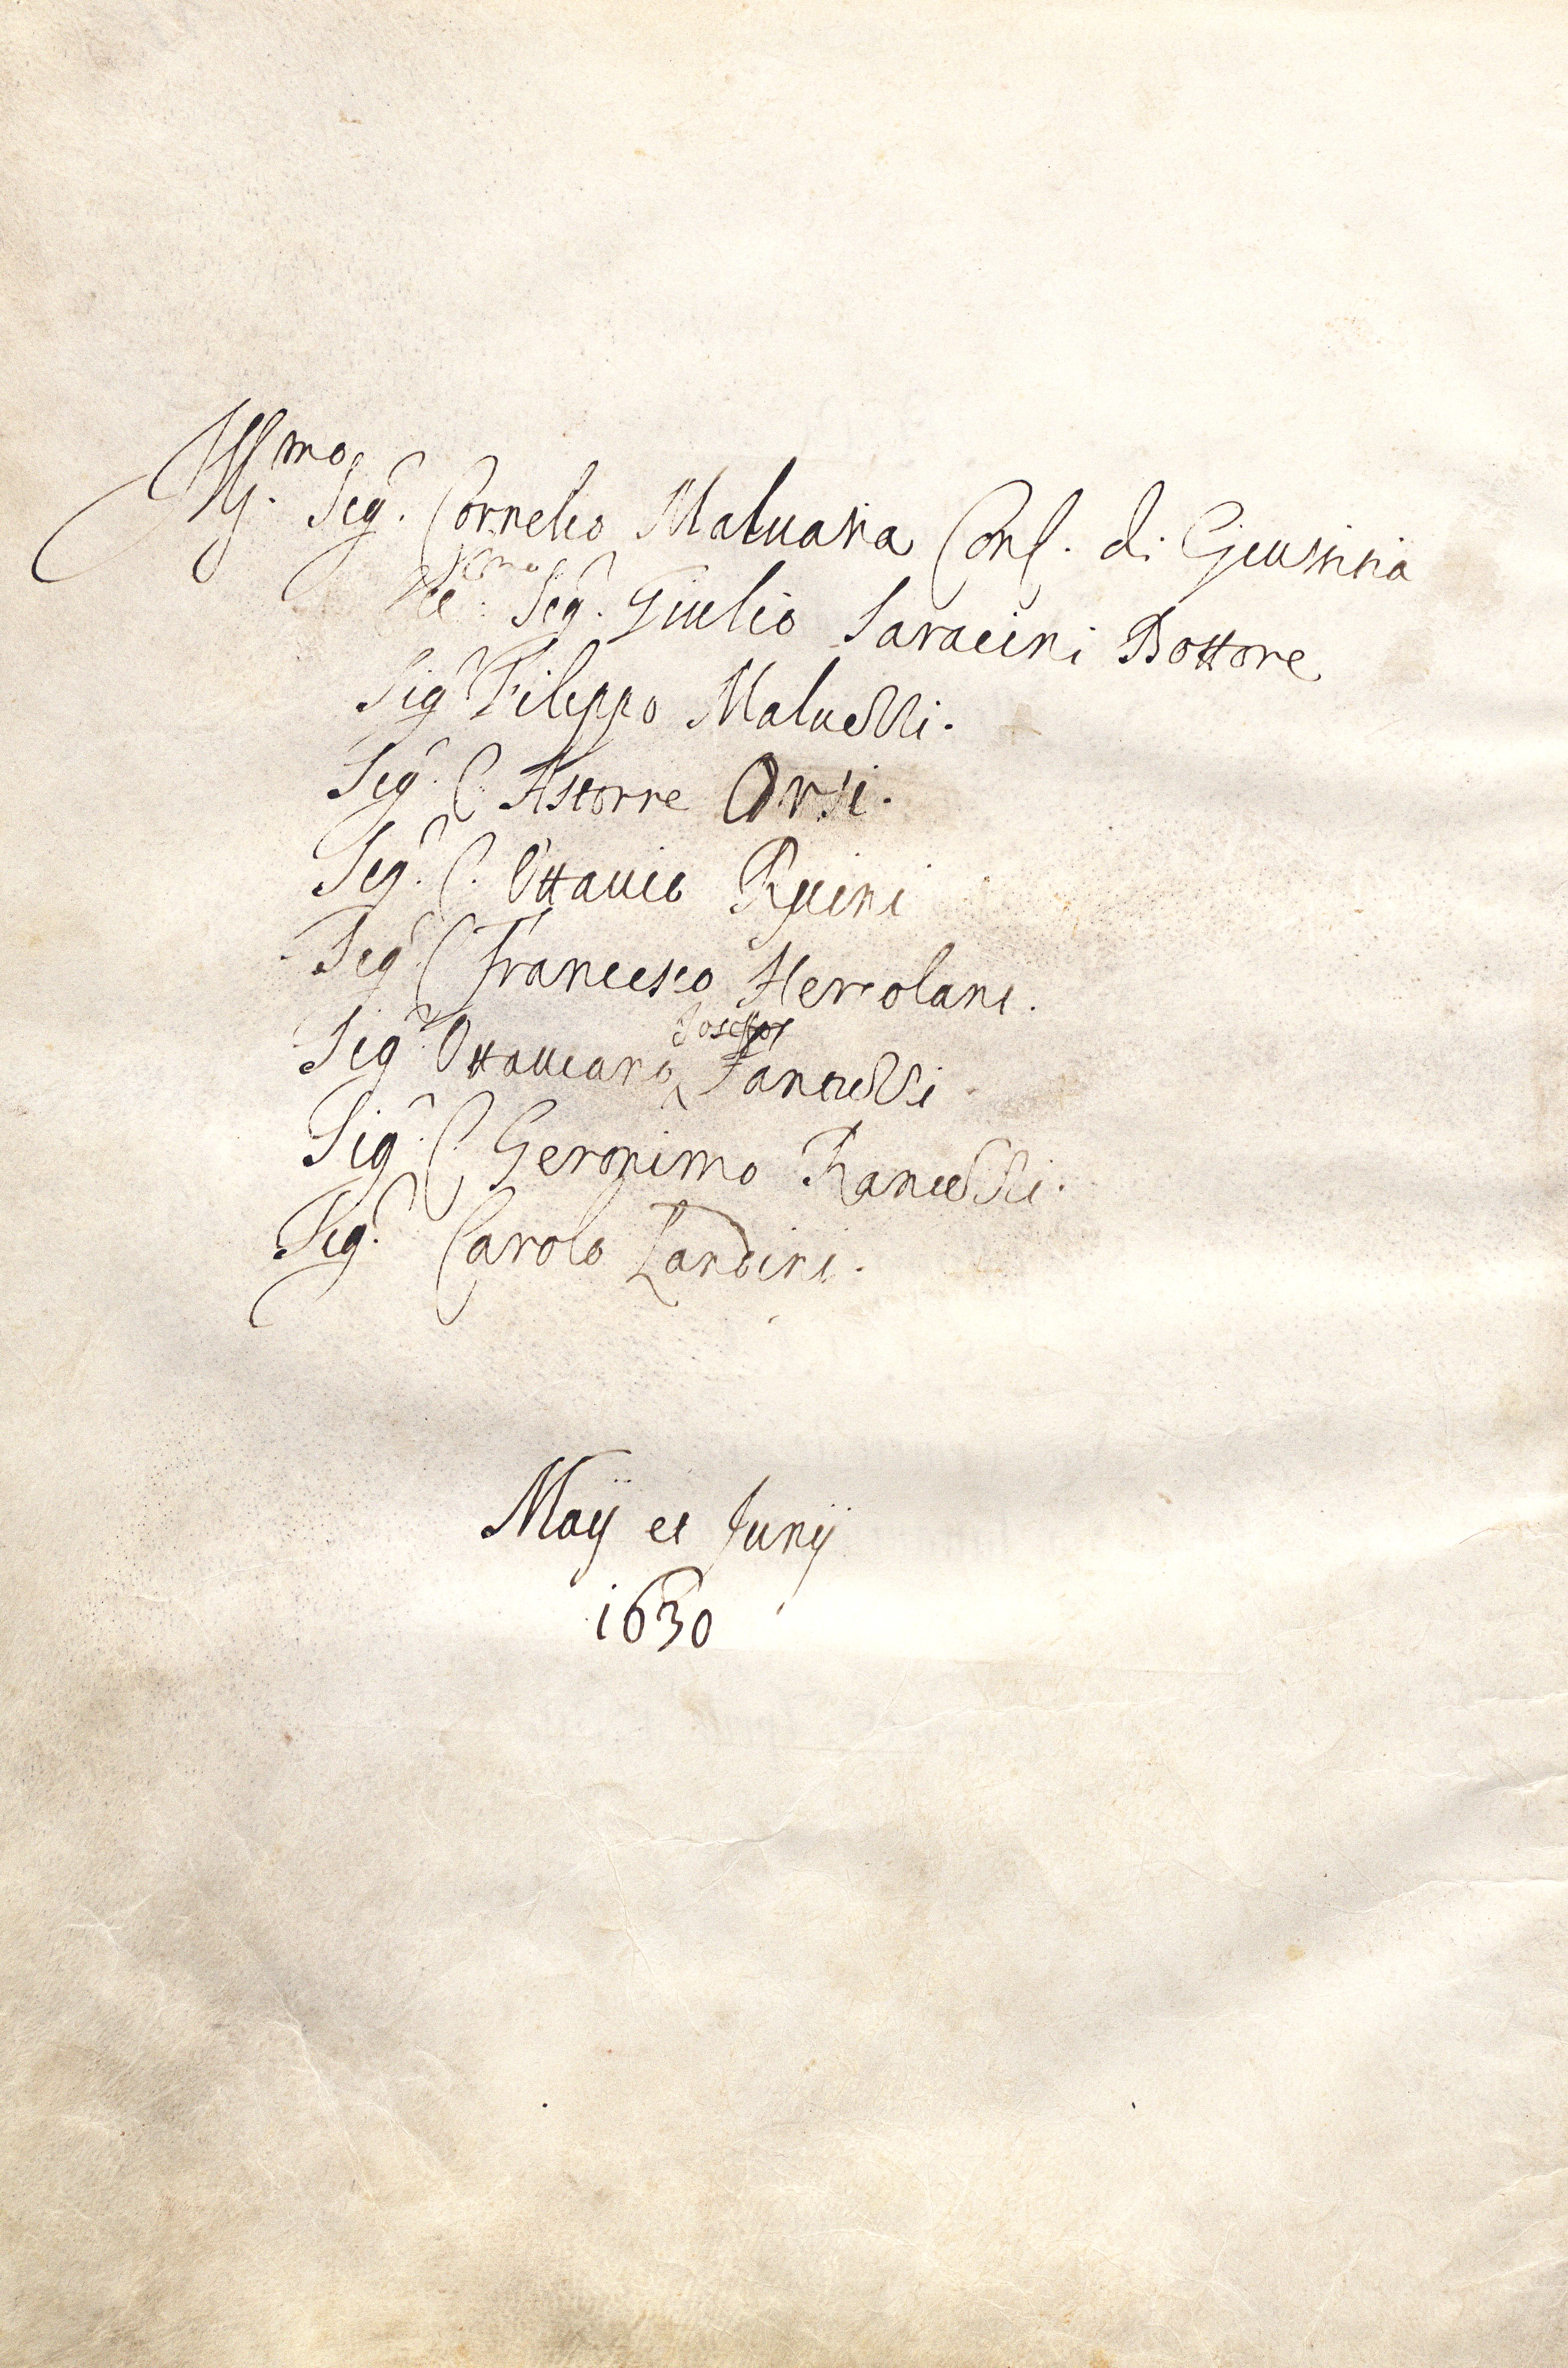 Ill.mo Sig.r Cornelio Maluasia Conf. di Giustitia
Ecc.mo Sig.r Giulio Saracini Dottore
Sig.r Filippo Maluezzi.
Sig.r C. Astorre Orsi.
Sig.r C. Ottauio Ruini
Sig.r C. Francesco Hercolani.
Sig.r Ottauiano Zancuzzi
Sig.r C. Geronimo Ranuzzi.
Sig.r Carolo Landini.
Maij et Junij
1630